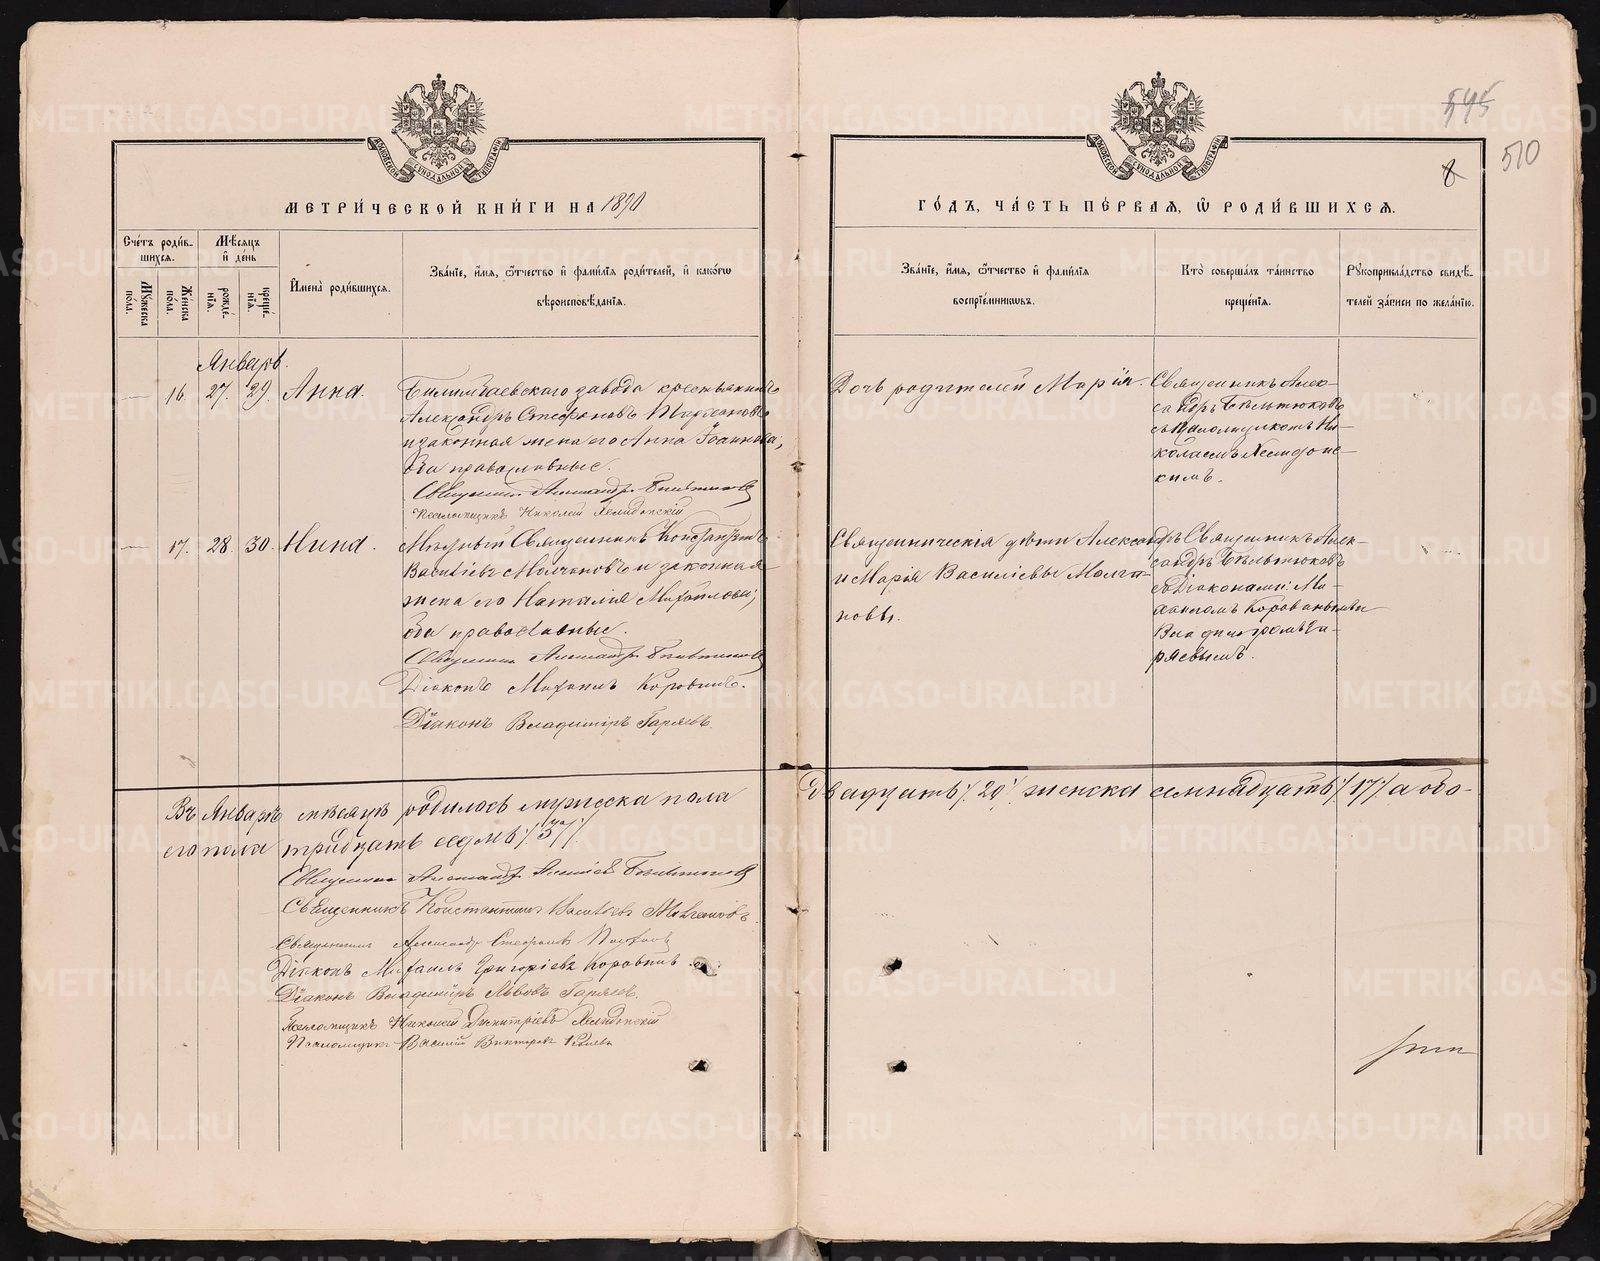 545
510
8
МЕТРИ́ЧЕСКОЙ КНИ́ГИ НА 1890
ГО́ДЪ, ЧА́СТЬ ПЕ́РВАЯ, Ѽ РОДИ́ВШИХСЯ.
Сче́тъ роди́в-
шихся.
Мꙋжеска по́ла.
Же́нска по́ла.
Мѣ́сяцъ
и҆ де́нь
рожде́-
нїя.
креще́-
нїя.
И҆мена̀ роди́вшихся.
Зва́нїе, и҆́мя, ѻ҆́тчество и҆ фами́лїя роди́телей, и҆ како́гѡ
вѣроисповѣ́данїя.
Зва́нїе, и҆́мя, ѻ҆́тчество и҆ фами́лїя
воспрїе́мникѡвъ.
Кто̀ соверша́лъ та́инство
креще́нїя.
Рꙋкоприкла́дство свидѣ́-
телей за́писи по жела́нїю.
Январь.
16. 27. 29. Анна.
Билимбаевскаго завода крестьянинъ
Александръ Стефановъ
и законная жена его Анна Іоаннова,
оба православные.
Священникъ Александръ
Псаломщикъ Николай Хелидонскій
Дочь родителей Марія.
Священникъ Алек-
сандръ
съ Псаломщикомъ Ни-
колаемъ Хелидонс-
кимъ.
17. 28. 30. Нина.
Мѣстный Священникъ Константинъ
Васильевъ Молчановъ и законная
жена его Наталія Михайлова,
оба православные.
Священникъ Александръ
Діаконъ Михаилъ Коровинъ.
Діаконъ Владиміръ Гаряевъ.
Священническія дѣти Александръ
и Марія Василіевы Молча-
новы.
Священникъ Алек-
сандръ
съ Діаконами: Ми-
хаиломъ Коровинымъ и
Владиміромъ Га-
ряевымъ.
Въ Январѣ мѣсяцѣ родилось мужеска пола двадцать /20/ женска семнадцать /17/ а обо-
его пола тридцать седмь /37/
Священникъ Александръ
Священникъ Константинъ Васильевъ Молчановъ
Священникъ Александръ Стефановъ
Діаконъ Михаилъ Григоріевъ Коровинъ
Діаконъ Владиміръ Львовъ Гаряевъ.
Псаломщикъ Николай Димитріевъ Хелидонскій
Псаломщикъ Василій Викторовъ
METRIKI.GASO-URAL.RU